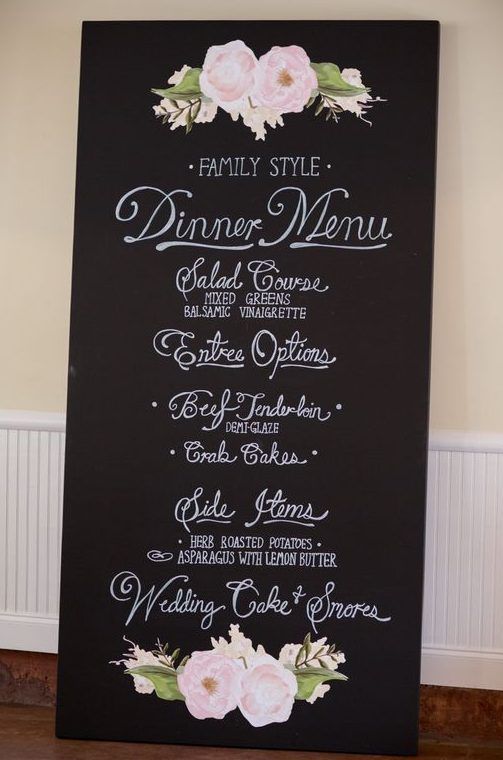 · FAMILY STYLE ·
Dinner Menu
Salad Course
MIXED GREENS
BALSAMIC VINAIGRETTE
Entree Options
· Beef Tenderloin ·
DEMI-GLAZE
· Crab Cakes ·
Side Items
· HERB ROASTED POTATOES ·
ASPARAGUS WITH LEMON BUTTER
Wedding Cake & Smores